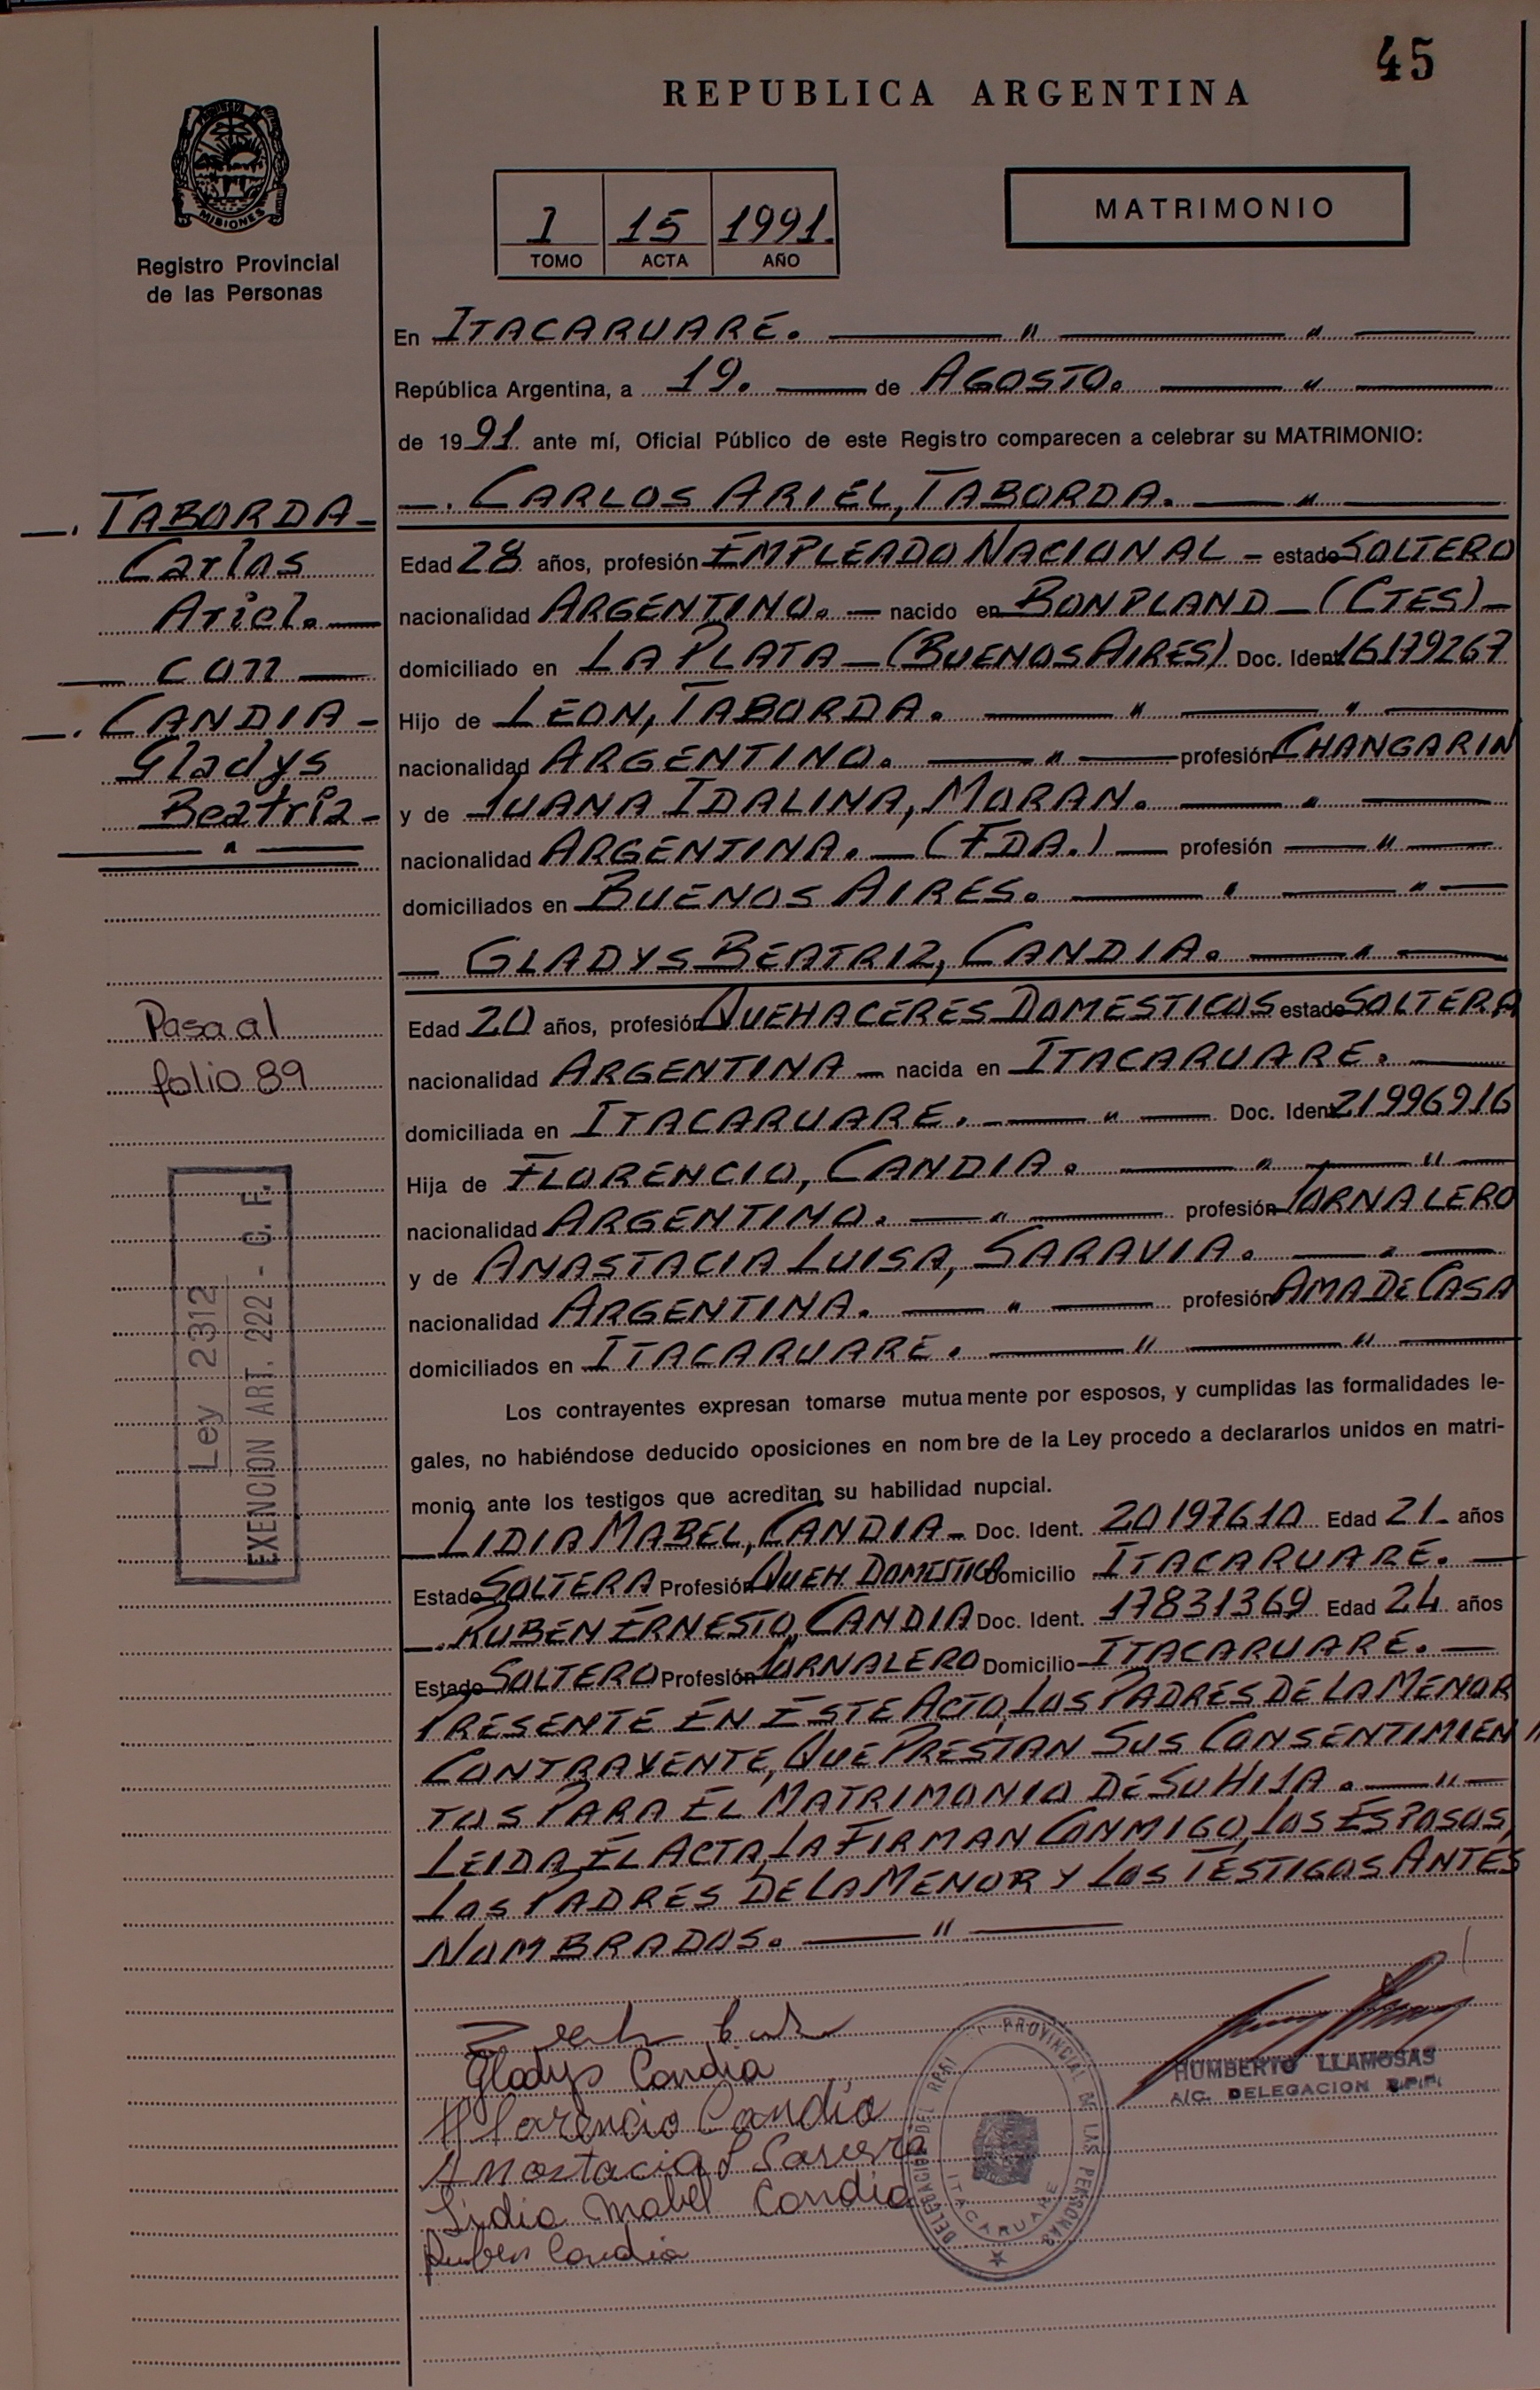 45
REPUBLICA ARGENTINA
MISIONES
Registro Provincial
de las Personas
1 15 1991.
TOMO ACTA AÑO
MATRIMONIO
En ITACARUARE. — " — " —
República Argentina, a 19. — de AGOSTO. — " —
de 1991 ante mí, Oficial Público de este Registro comparecen a celebrar su MATRIMONIO:
—. TABORDA —
Carlos
Ariel. —
— con —
—. CANDIA —
Gladys
Beatriz —
— " —
—. CARLOS ARIEL, TABORDA. — " —
Edad 28 años, profesión EMPLEADO NACIONAL — estado SOLTERO
nacionalidad ARGENTINO. — nacido en BONPLAND — (CTES) —
domiciliado en LA PLATA — (BUENOS AIRES) Doc. Ident. 16179267
Hijo de LEON, TABORDA. — " — " —
nacionalidad ARGENTINO. — " — profesión CHANGARIN
y de JUANA IDALINA, MORAN. — " —
nacionalidad ARGENTINA. — (FDA.) — profesión — " —
domiciliados en BUENOS AIRES. — " — " —
— GLADYS BEATRIZ, CANDIA. — " —
Edad 20 años, profesión QUEHACERES DOMESTICOS estado SOLTERA
nacionalidad ARGENTINA — nacida en ITACARUARE. —
domiciliada en ITACARUARE. — " — Doc. Ident. 21996916
Hija de FLORENCIO, CANDIA. — " — " —
nacionalidad ARGENTINO. — " — profesión JORNALERO
y de ANASTACIA LUISA, SARAVIA. — " —
nacionalidad ARGENTINA. — " — profesión AMA DE CASA
domiciliados en ITACARUARE. — " — " —
Pasa al
folio 89
Ley 2312
EXENCION ART. 222 - C. F.
Los contrayentes expresan tomarse mutuamente por esposos, y cumplidas las formalidades le-
gales, no habiéndose deducido oposiciones en nombre de la Ley procedo a declararlos unidos en matri-
monio ante los testigos que acreditan su habilidad nupcial.
— LIDIA MABEL, CANDIA — Doc. Ident. 20197610 Edad 21 — años
Estado SOLTERA Profesión QUEH DOMESTICO Domicilio ITACARUARE. —
—. RUBEN ERNESTO, CANDIA Doc. Ident. 17831369 Edad 24 años
Estado SOLTERO Profesión JORNALERO Domicilio ITACARUARE. —
PRESENTE EN ESTE ACTO, LOS PADRES DE LA MENOR
CONTRAYENTE, QUE PRESTAN SUS CONSENTIMIEN
TOS PARA EL MATRIMONIO DE SU HIJA. — " —
LEIDA EL ACTA, LA FIRMAN CONMIGO, LOS ESPOSOS,
LOS PADRES DE LA MENOR Y LOS TESTIGOS ANTES
NOMBRADOS. — " —
Gladys Candia
Florencio Candia
Anastacia L
Lidia Mabel Candia
Ruben Candia
DELEGACION DEL PROVINCIAL DE LAS PERSONAS
ITACARUARE
HUMBERTO LLAMOSAS
A/C. DELEGACION R.P.P.